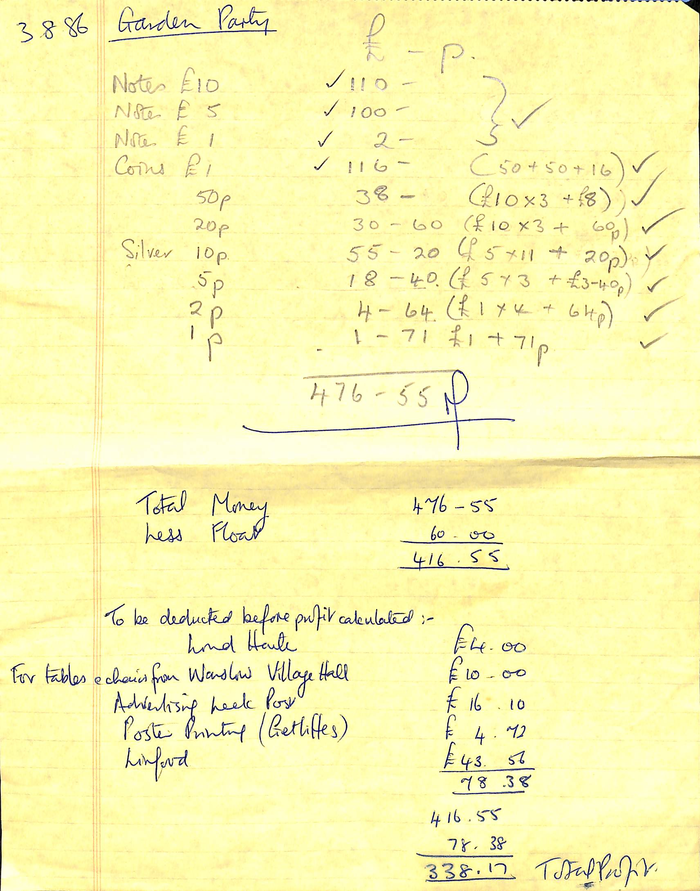 3.8.86 Garden Party
£ - p.
Notes £10 ✓ 110 -
Notes £ 5 ✓ 100 - ✓
Notes £ 1 ✓ 2 -
Coins £1 ✓ 116 - (50+50+16) ✓
50p 38 - (£10×3 + £8) ✓
20p 30 - 60 (£10×3 + 60p) ✓
Silver 10p 55 - 20 (£5×11 + 20p) ✓
5p 18 - 40 (£5×3 + £3-40p) ✓
2p 4 - 64 (£1×4 + 64p) ✓
1p 1 - 71 £1 + 71p ✓
476 - 55
Total Money 476 - 55
Less Float 60.00
416.55
To be deducted before profit calculated :-
£4.00
For tables & chairs from Warslow Village Hall £10-00
Advertising Leek Post £16.10
Poster Printing (Getliffes) £4.72
Linfood £43.56
78.38
416.55
78.38
338.17 Total Profit.